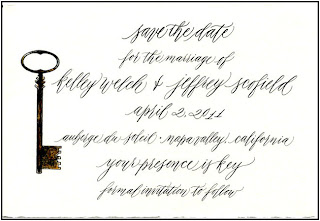 save the date
for the marriage of
kelley welch & jeffrey scofield
april 2, 2011
auberge du soleil · napa valley · california
your presence is key
formal invitation to follow